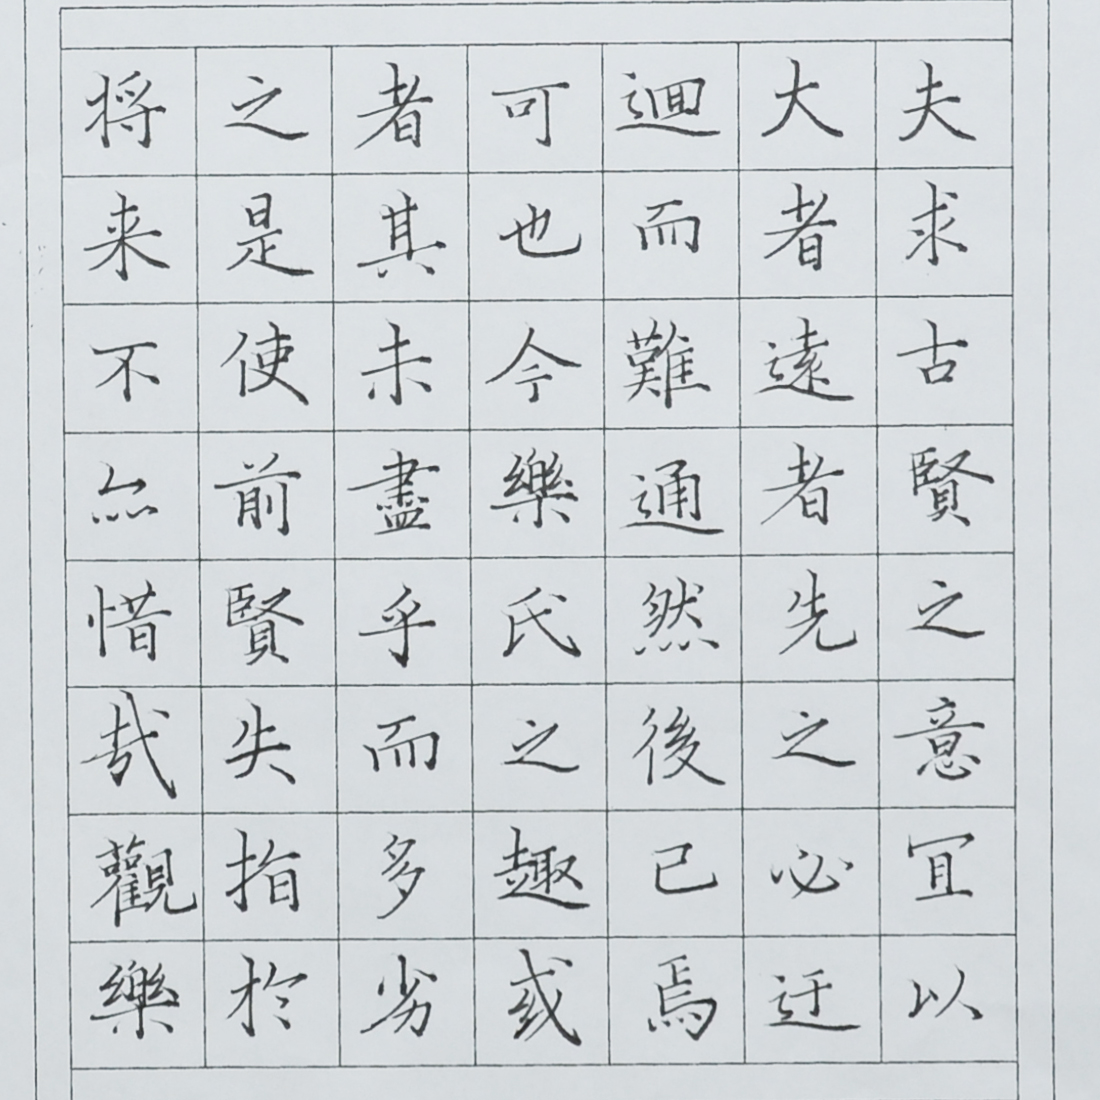 夫求古賢之意冝以
大者遠者先之必迂
迴而難通然後已焉
可也今樂氏之趣或
者其未盡乎而多劣
之是使前賢失指於
将来不亦惜哉觀樂